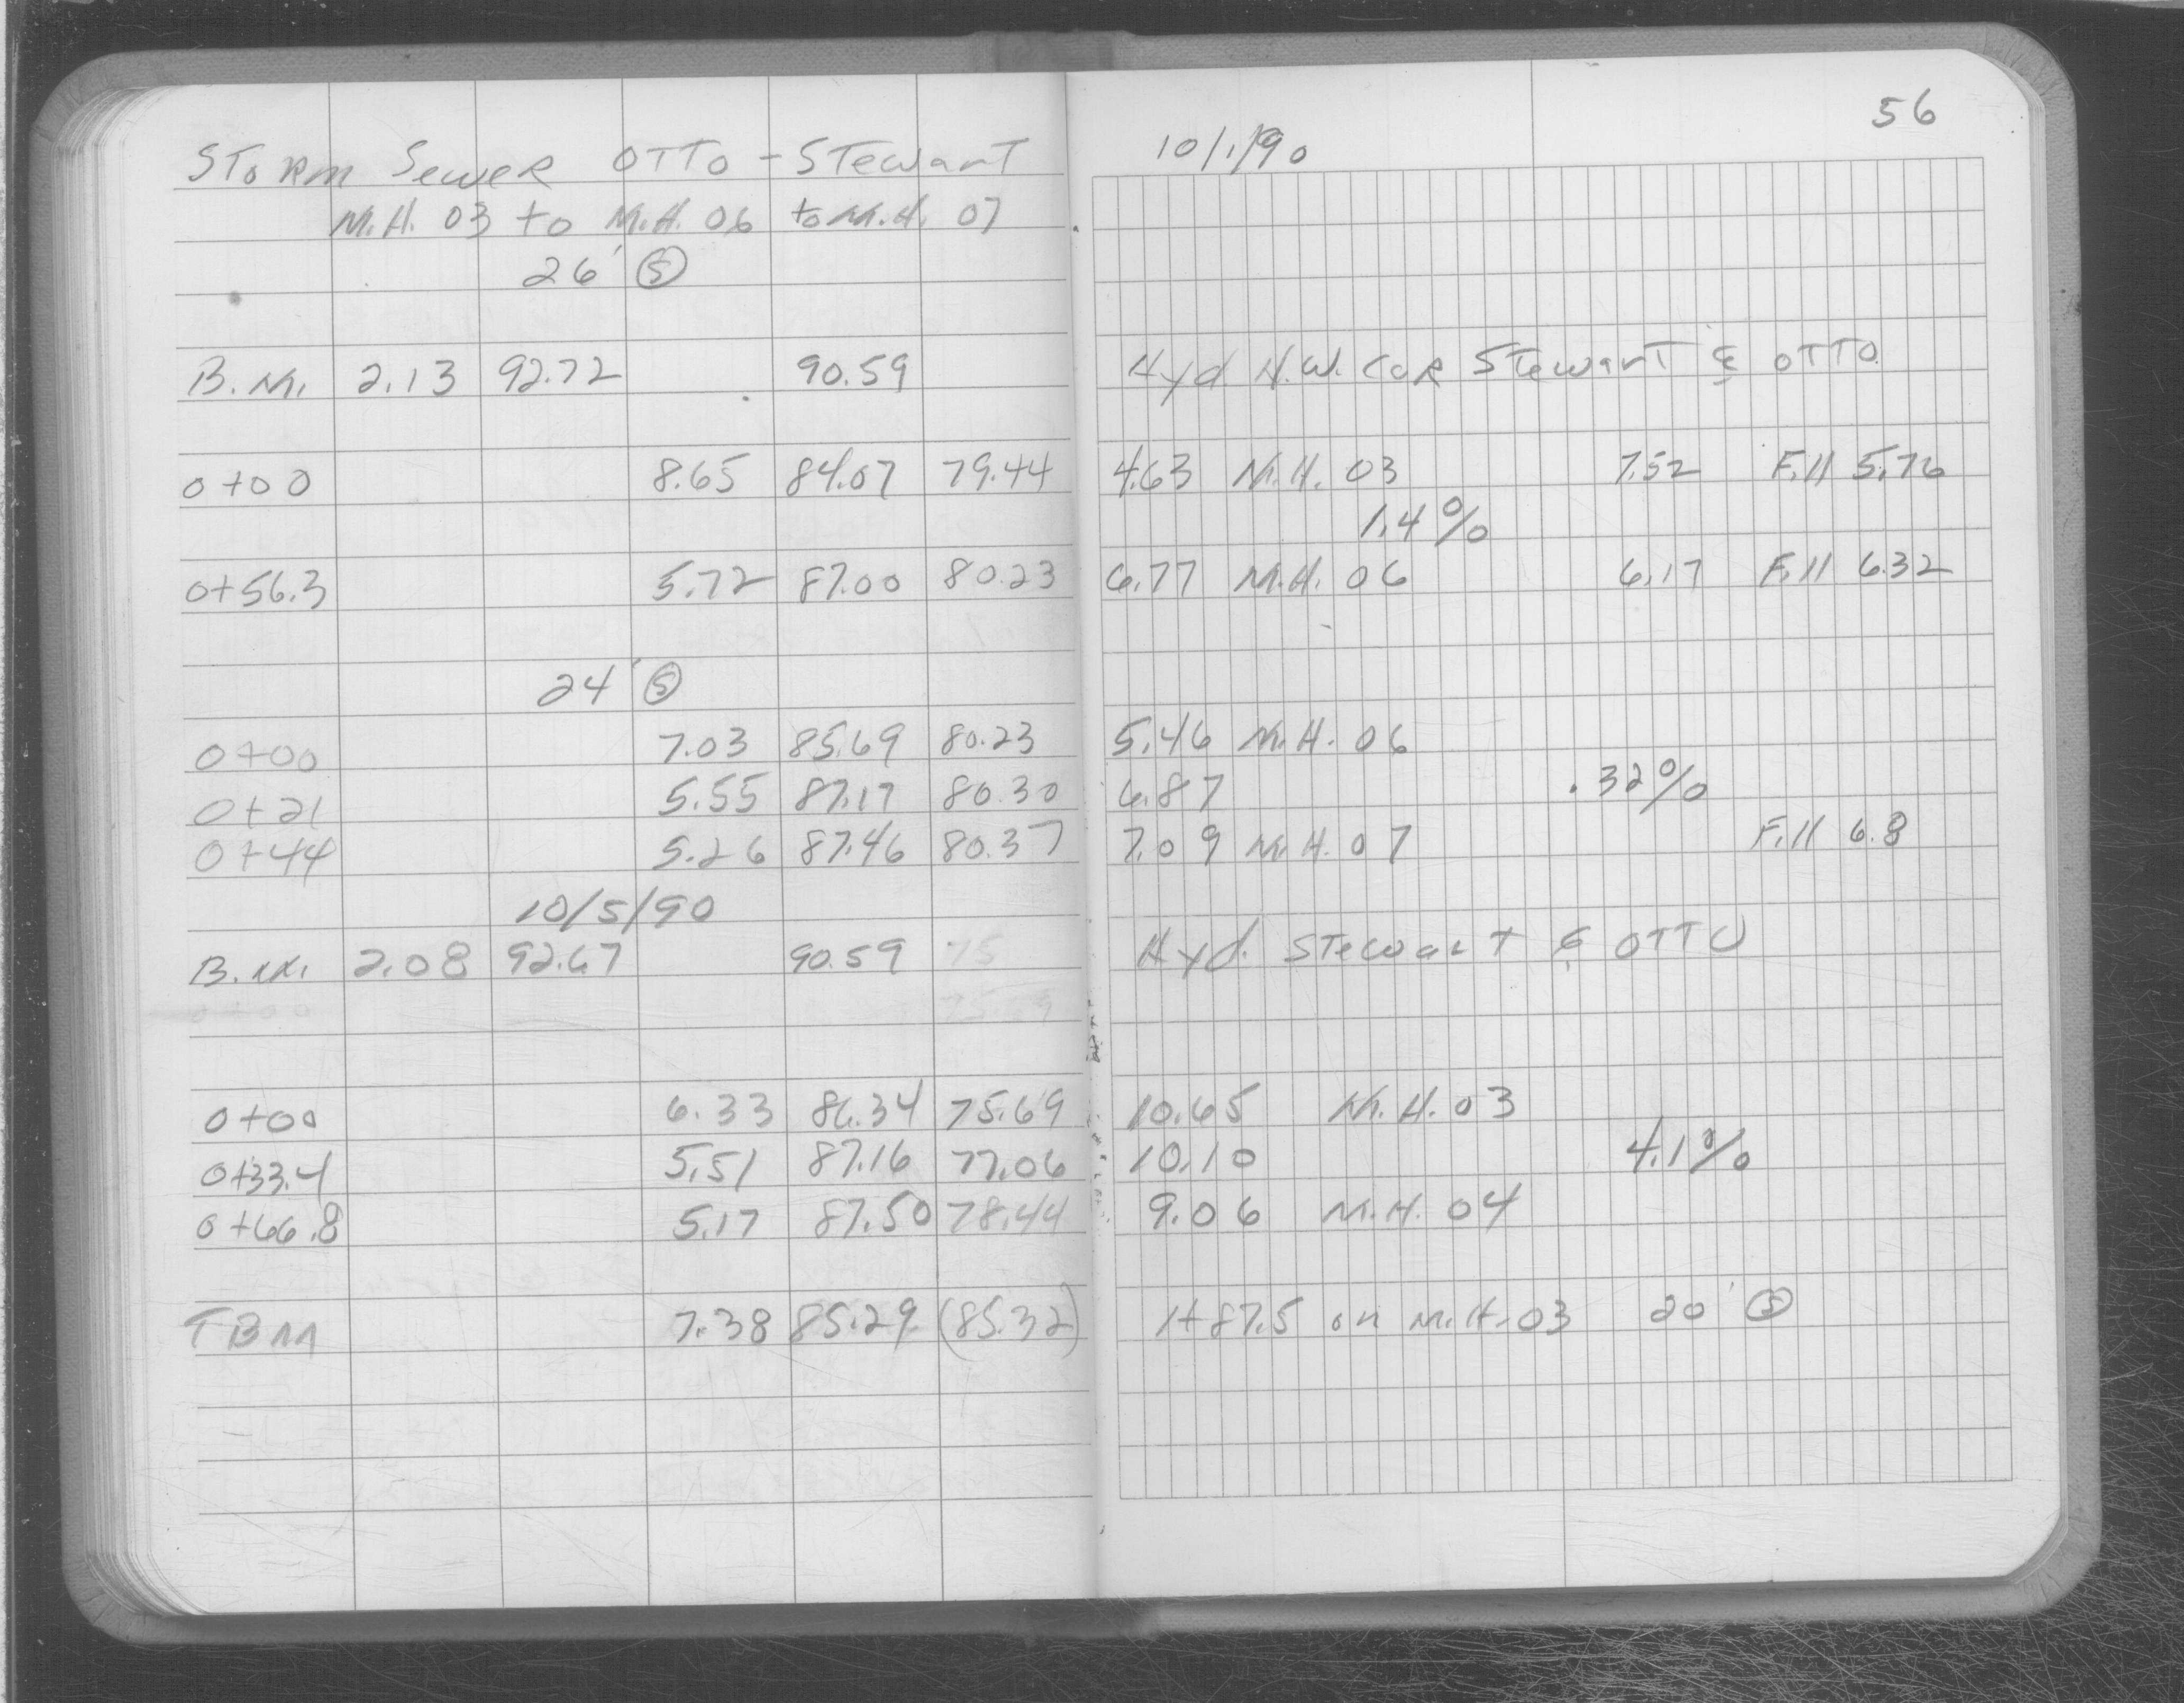 56
STORM SEWER OTTO - STEWART 10/1/90
M.H. 03 to M.H. 06 to M.H. 07
26' (S)
B.M. 2.13 92.72 90.59 Hyd N.W. COR STEWART & OTTO
0+00 8.65 84.07 79.44 4.63 M.H. 03 7.52 Fill 5.76
1.4%
0+56.3 5.72 87.00 80.23 6.77 M.H. 06 6.17 Fill 6.32
24' (S)
0+00 7.03 85.69 80.23 5.46 M.H. 06
0+21 5.55 87.17 80.30 6.87 .32%
0+44 5.26 87.46 80.37 7.09 M.H. 07 Fill 6.8
10/5/90
B.M. 2.08 92.67 90.59 75 Hyd. STEWART & OTTO
0+00 75.69
0+00 6.33 86.34 75.69 10.65 M.H. 03
0+33.4 5.51 87.16 77.06 10.10 4.1%
0+66.8 5.17 87.50 78.44 9.06 M.H. 04
TBM 7.38 85.29 (85.32) 1+87.5 on M.H. 03 20' (S)